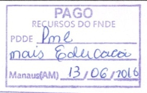 PAGO
RECURSOS DO FNDE
PDDE Pnl
mais Educação
Manaus(AM) 13/06/2016